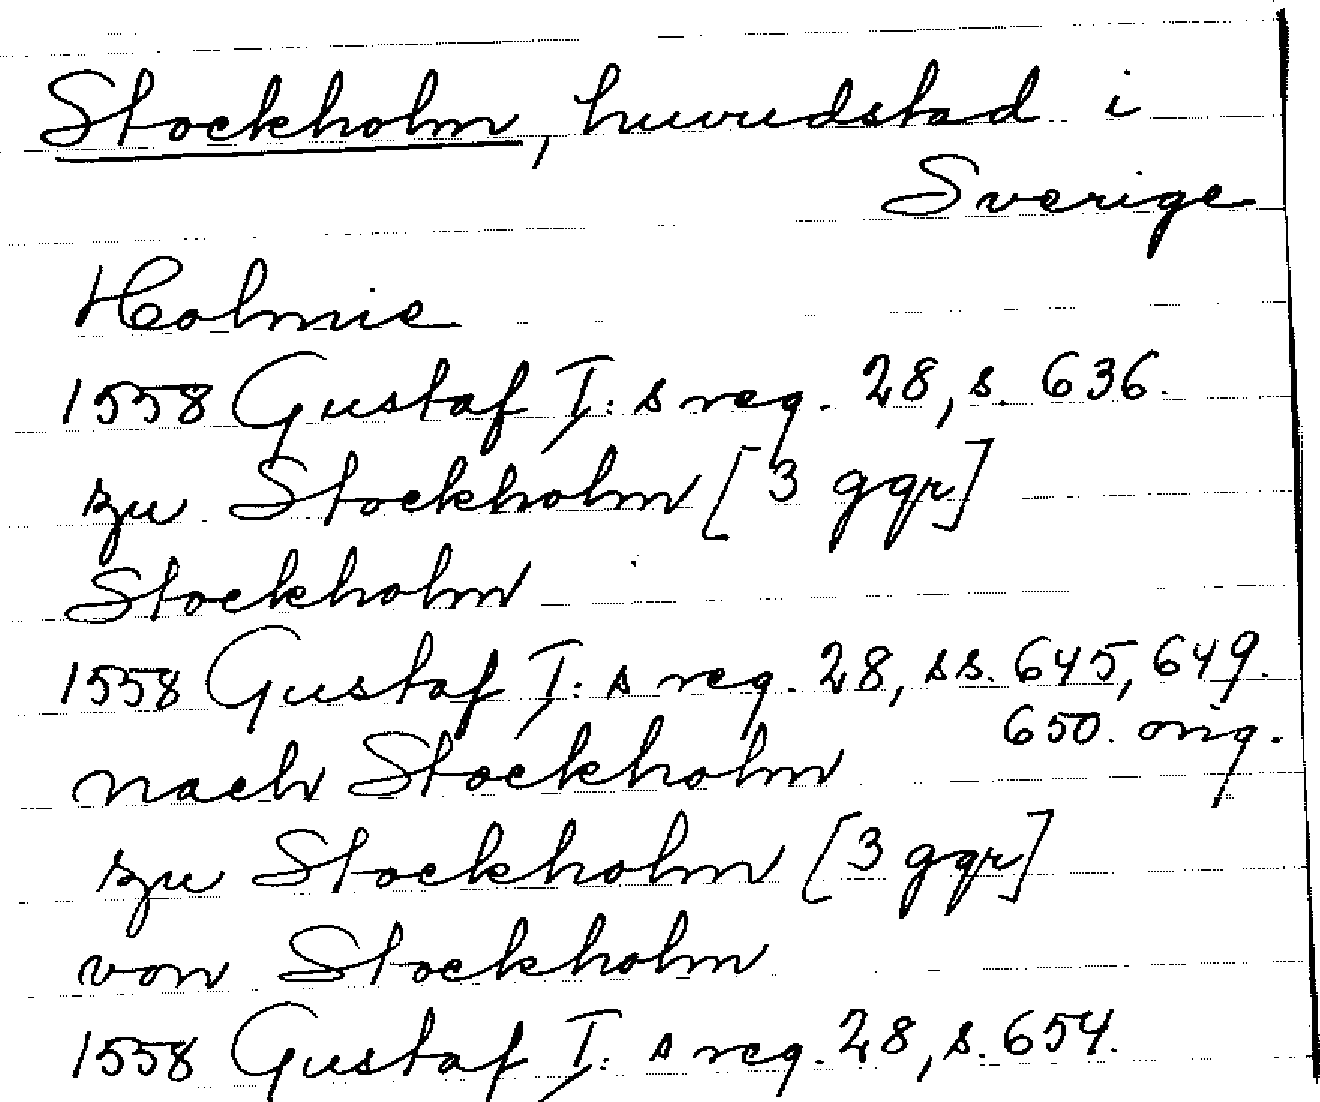 Stockholm, huvudstad i
Sverige
Holmie
1558 Gustaf I:s reg. 28, s. 636.
zu Stockholm [3 ggr]
Stockholm
1558 Gustaf I:s reg. 28, ss. 645, 649.
650. orig.
nach Stockholm
zu Stockholm [3 ggr]
von Stockholm
1558 Gustaf I:s reg. 28, s. 654.